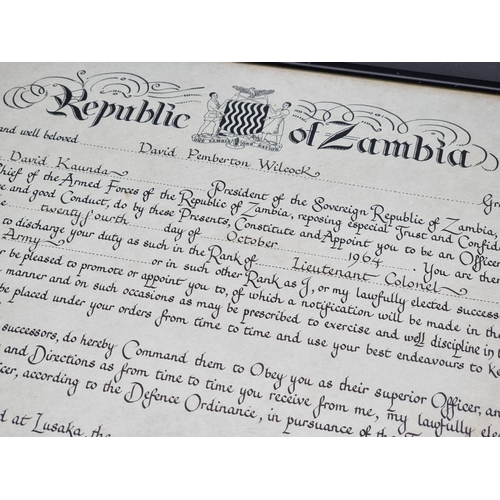 Republic of Zambia
ONE ZAMBIA ONE NATION
and well beloved David Pemberton Wilcock Gr
David Kaunda President of the Sovereign Republic of Zambia,
Chief of the Armed Forces of the Republic of Zambia, reposing especial Trust and Confid
and good Conduct, do by these Presents, Constitute and Appoint you to be an Officer
twenty fourth day of October 1964. You are ther
to discharge your duty as such in the Rank of Lieutenant Colonel
Army or in such other Rank as I, or my lawfully elected success
be pleased to promote or appoint you to, of which a notification will be made in the
manner and on such occasions as may be prescribed to exercise and well discipline in t
be placed under your orders from time to time and use your best endeavours to ke
successors, do hereby Command them to Obey you as their superior Officer, an
and Directions as from time to time you receive from me, my lawfully ele
icer, according to the Defence Ordinance, in pursuance of the
d at Lusaka, the